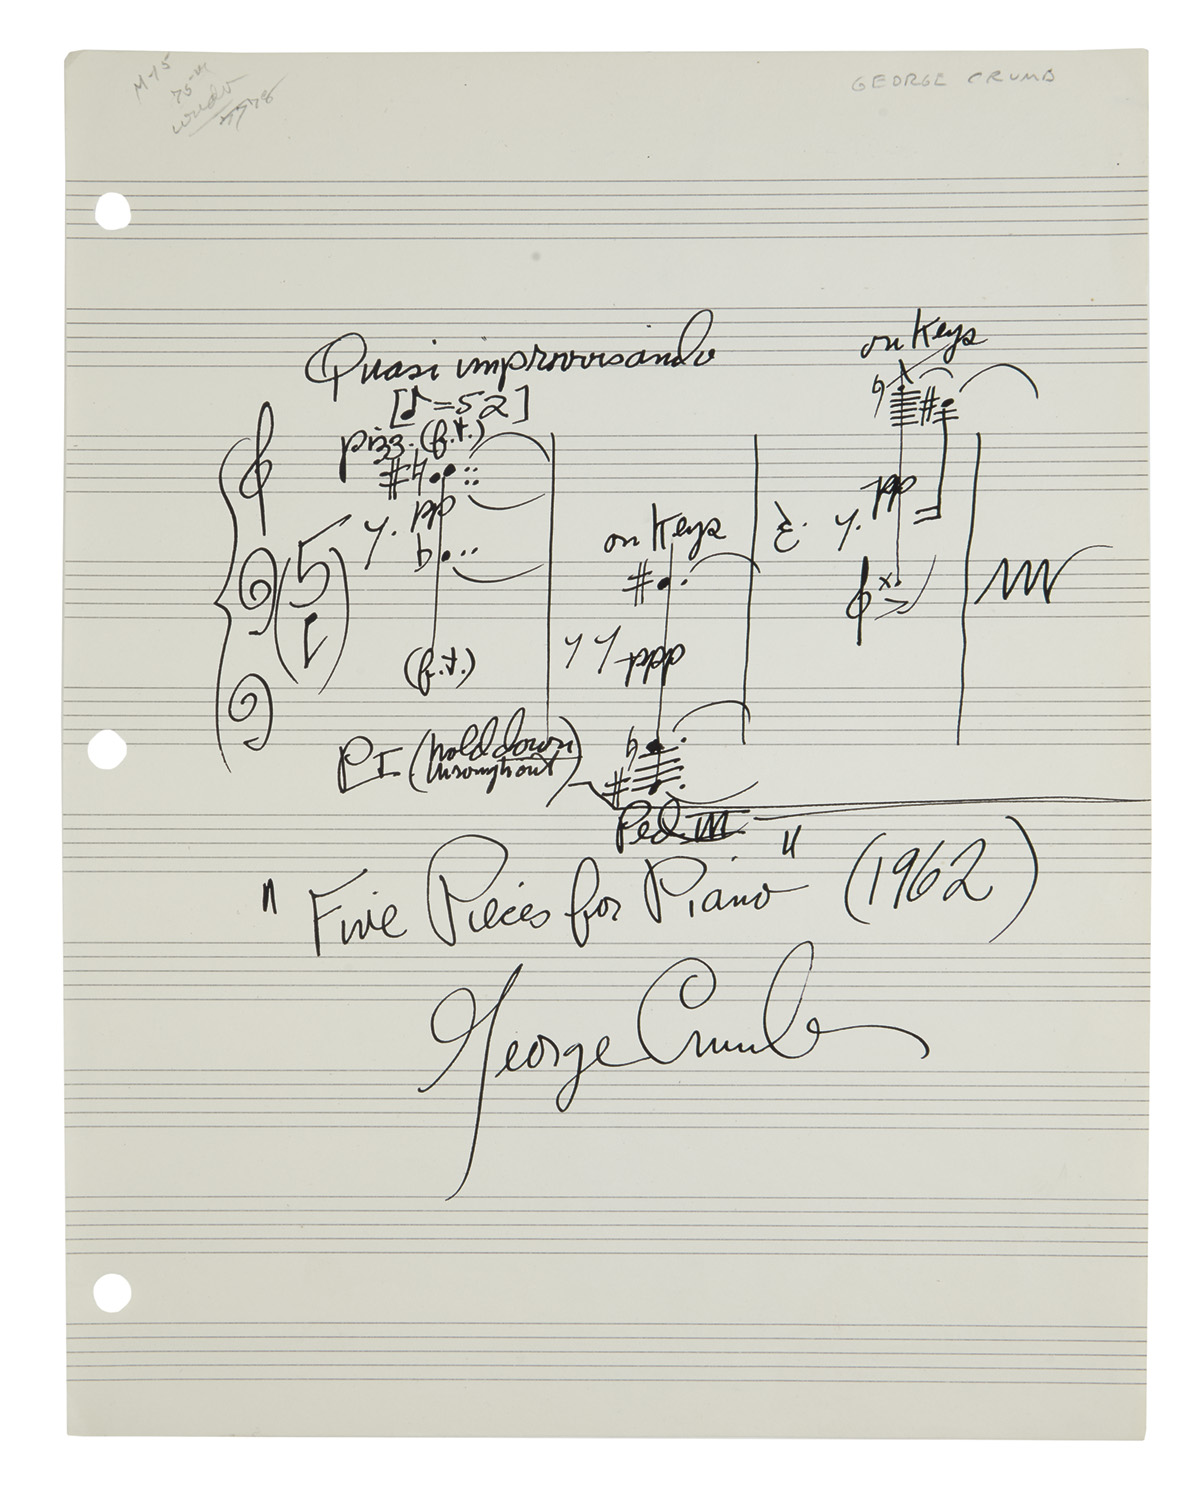 M-15
75-
GEORGE CRUMB
Quasi improvvisando
[♪=52]
on Keys
pizz. (f.t.)
pp
pp
on Keys
(5
ppp
(f.t.)
(hold down
throughout)
Ped III
"Five Pieces for Piano" (1962)
George Crumb